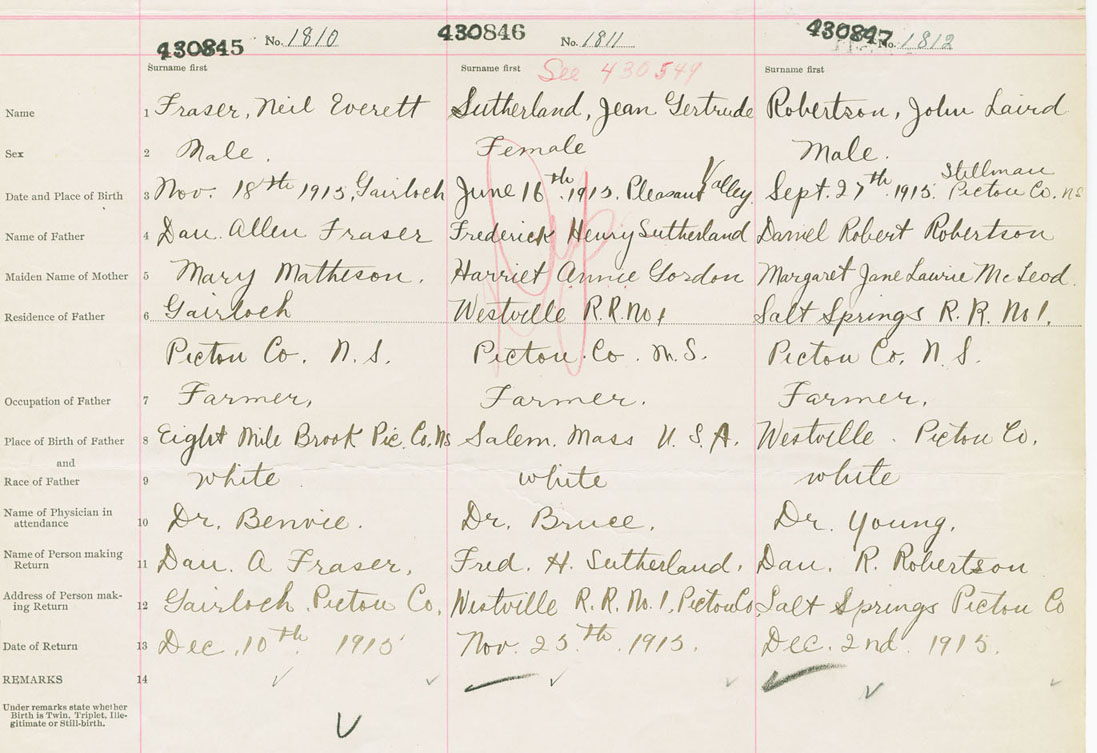 430845 No. 1810 430846 No. 1811 430847 No. 1812
Surname first Surname first See 430549 Surname first
Name 1 Fraser, Neil Everett Sutherland, Jean Gertrude Robertson, John Laird
Sex 2 Male. Female Male.
Date and Place of Birth 3 Nov. 18th 1915, Gairloch June 16th 1915. Pleasant Valley. Sept. 27th 1915. Stillman Pictou Co. NS
Name of Father 4 Dan. Allen Fraser Frederick Henry Sutherland Daniel Robert Robertson
Maiden Name of Mother 5 Mary Matheson. Harriet Annie Gordon Margaret Jane Lawrie McLeod.
Residence of Father 6 Gairloch Westville R.R. No 1 Salt Springs R. R. No 1.
Pictou Co. N. S. Pictou. Co. N. S. Pictou Co. N. S.
Occupation of Father 7 Farmer. Farmer. Farmer.
Place of Birth of Father 8 Eight Mile Brook Pic. Co. NS Salem. Mass U. S. A. Westville. Pictou Co.
and
Race of Father 9 white white white
Name of Physician in
attendance 10 Dr. Benvie. Dr. Bruce. Dr. Young.
Name of Person making
Return 11 Dan. A Fraser. Fred. H. Sutherland. Dan. R. Robertson
Address of Person mak-
ing Return 12 Gairloch. Pictou Co. Westville R. R. No. 1, Pictou Co Salt Springs Pictou Co
Date of Return 13 Dec. 10th 1915 Nov. 25th 1915. Dec. 2nd. 1915.
REMARKS 14
Under remarks state whether
Birth is Twin, Triplet, Ille-
gitimate or Still-birth.